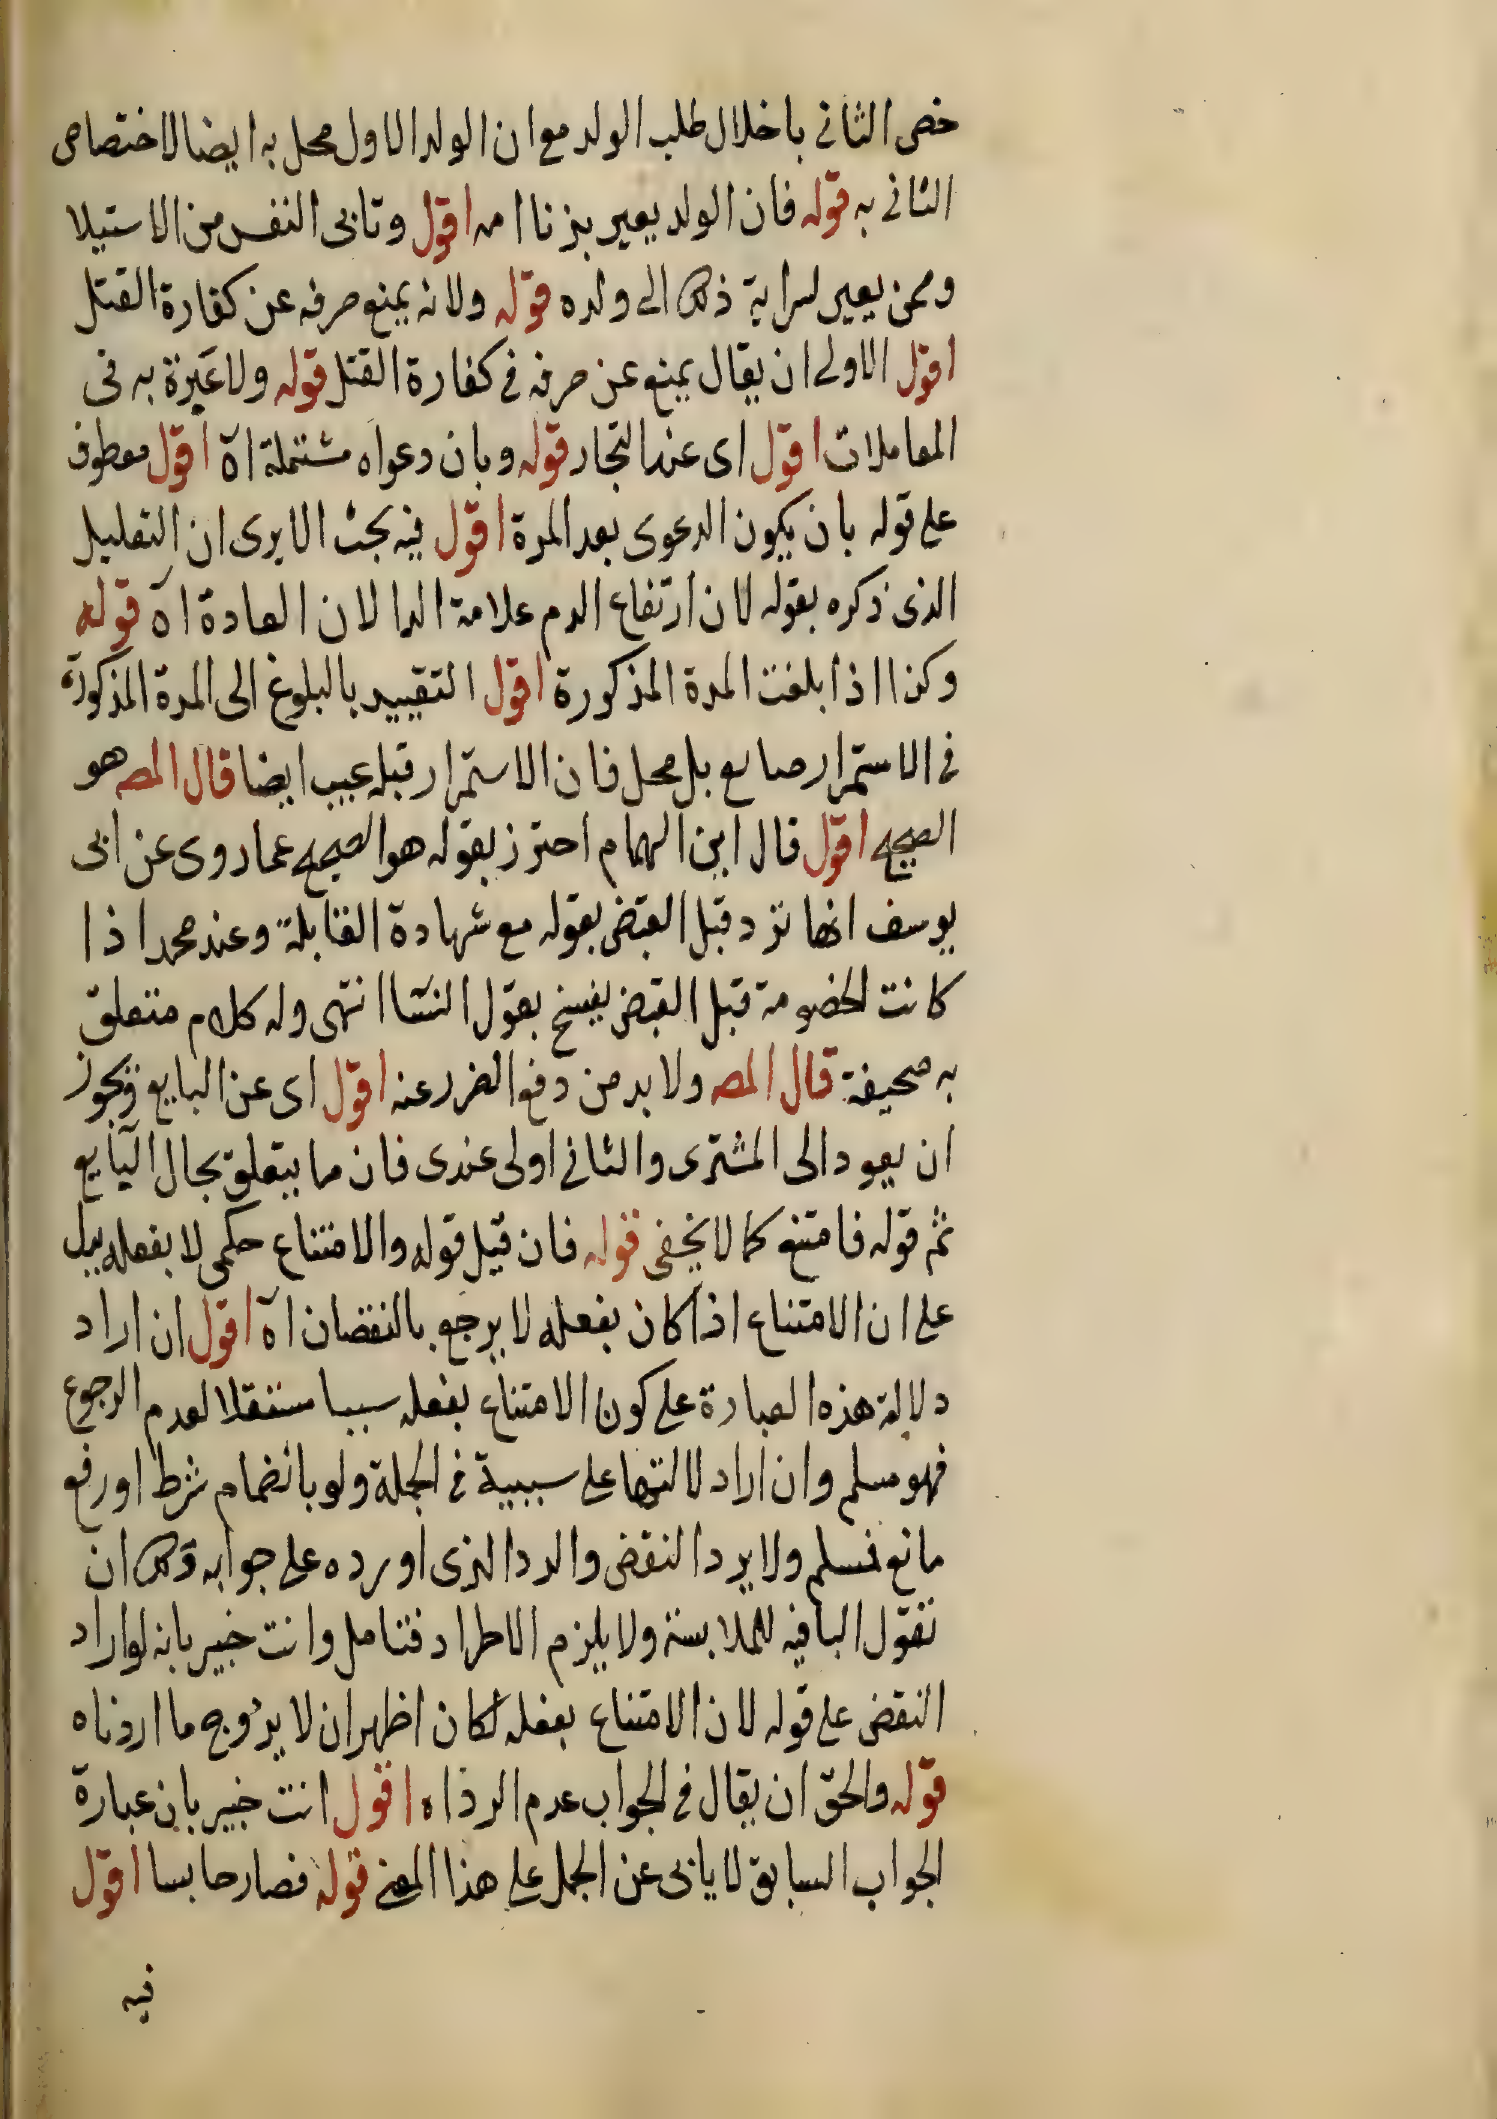 خص الثانى باخلال طلب الولد مع ان الولد الاول محل به ايضا لاختصاص
الثانى به قوله فان الولد يعير بزنا امه اقول وتابى النفس من الاستيلا
وممن يعير لسراية ذلك الى ولده قوله ولانه يمنع صرفه عن كفارة القتل
اقول الاولى ان يقال يمنع عن صرفه فى كفارة القتل قوله ولا عبرة به فى
المعاملات اقول اى عند التجار قوله وبان دعواه مشتملة اه اقول معطوف
على قوله بان يكون الدعوى بعد المدة اقول فيه بحث الا يرى ان التعليل
الذى ذكره بقوله لان ارتفاع الدم علامة الدا لان العادة اه قوله
وكذا اذا بلغت المدة المذكورة اقول التقييد بالبلوغ الى المدة المذكورة
فى الاستمرار ضايع بل محل فان الاستمرار قبله عيب ايضا قال المص هو
الصحيح اقول قال ابن الهمام احترز بقوله هو الصحيح عما روى عن ابى
يوسف انها ترد قبل القبض بقوله مع شهادة القابلة وعند محمد اذا
كانت الخصومة قبل القبض يفسخ بقول النسا انتهى وله كلام متعلق
به صحيفة قال المص ولا بد من دفع الضرر عنه اقول اى عن البايع ويجوز
ان يعود الى المشترى والثانى اولى عندى فان ما يتعلق بحال البايع
ثم قوله فامتنع كما لا يخفى قوله فان قيل قوله والامتناع حكمى لا بفعله يدل
على ان الامتناع اذا كان بفعله لا يرجع بالنقصان اه اقول ان اراد
دلالة هذه العبارة على كون الامتناع بفعله سببا مستقلا لعدم الرجوع
فهو مسلم وان اراد لالتها على سببية فى الجملة ولو بانضمام شرط او رفع
مانع فمسلم ولا يرد النقض والرد الذى اورده على جوابه ولك ان
تقول البا فيه للملابسة ولا يلزم الاطراد فتامل وانت خبير بانه لو اراد
النقض على قوله لان الامتناع بفعله لكان اظهر ان لا يروج ما اردناه
قوله والحق ان يقال فى الجواب عدم الرد اه اقول انت خبير بان عبارة
الجواب السابق لا يابى عن الحمل على هذا المعنى قوله فصار حابسا اقول
فيه